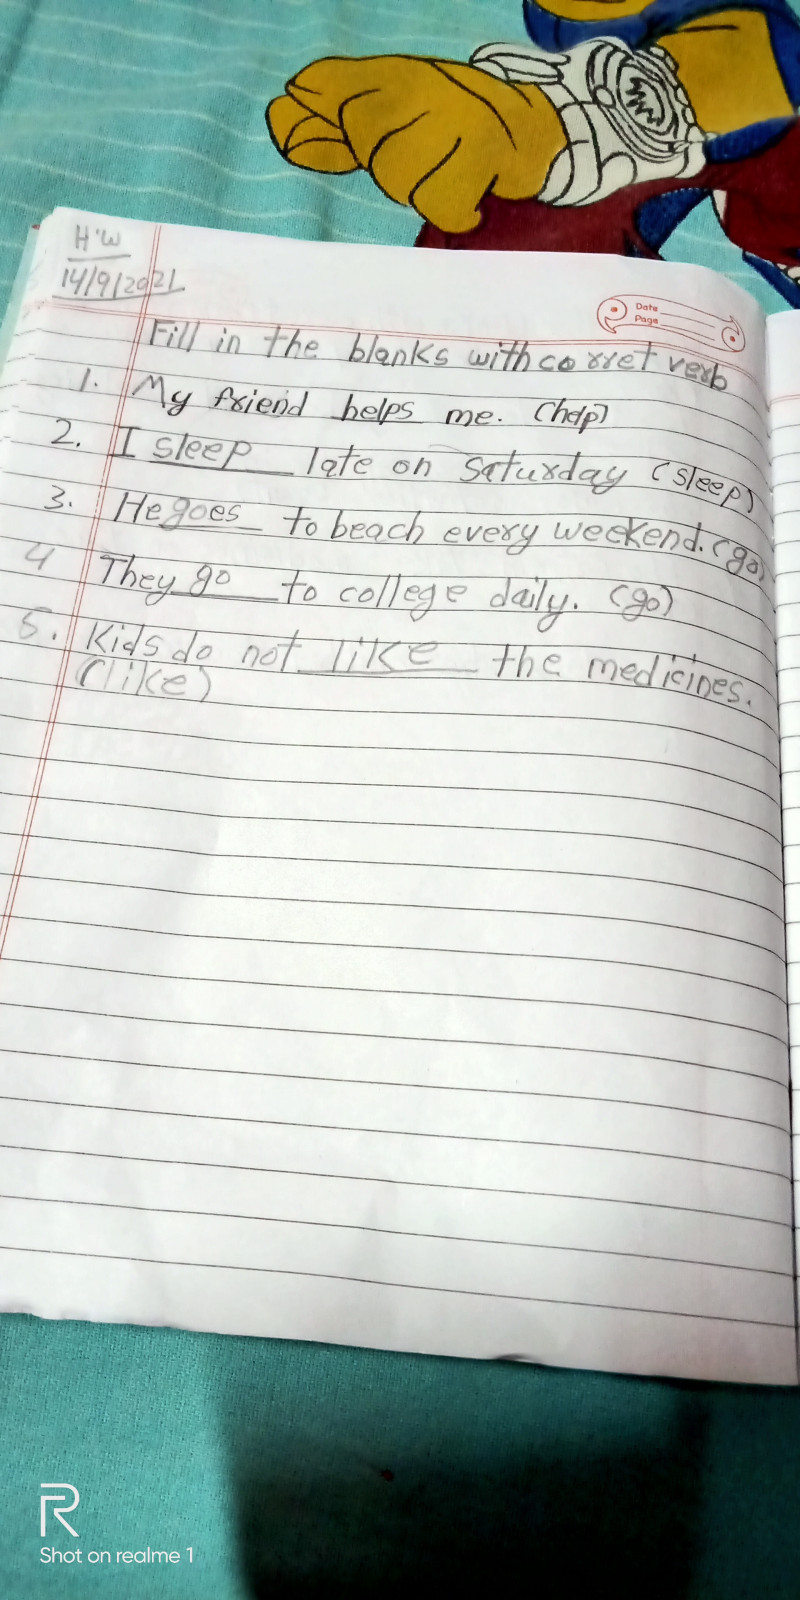 H.W
14/9/2021
Date
Page
Fill in the blanks with corret verb
1. My friend helps me. (help)
2. I sleep late on saturday (sleep)
3. He goes to beach every weekend. (go)
4 They go to college daily. (go)
5. Kids do not like the medicines.
(like)
R
Shot on realme 1